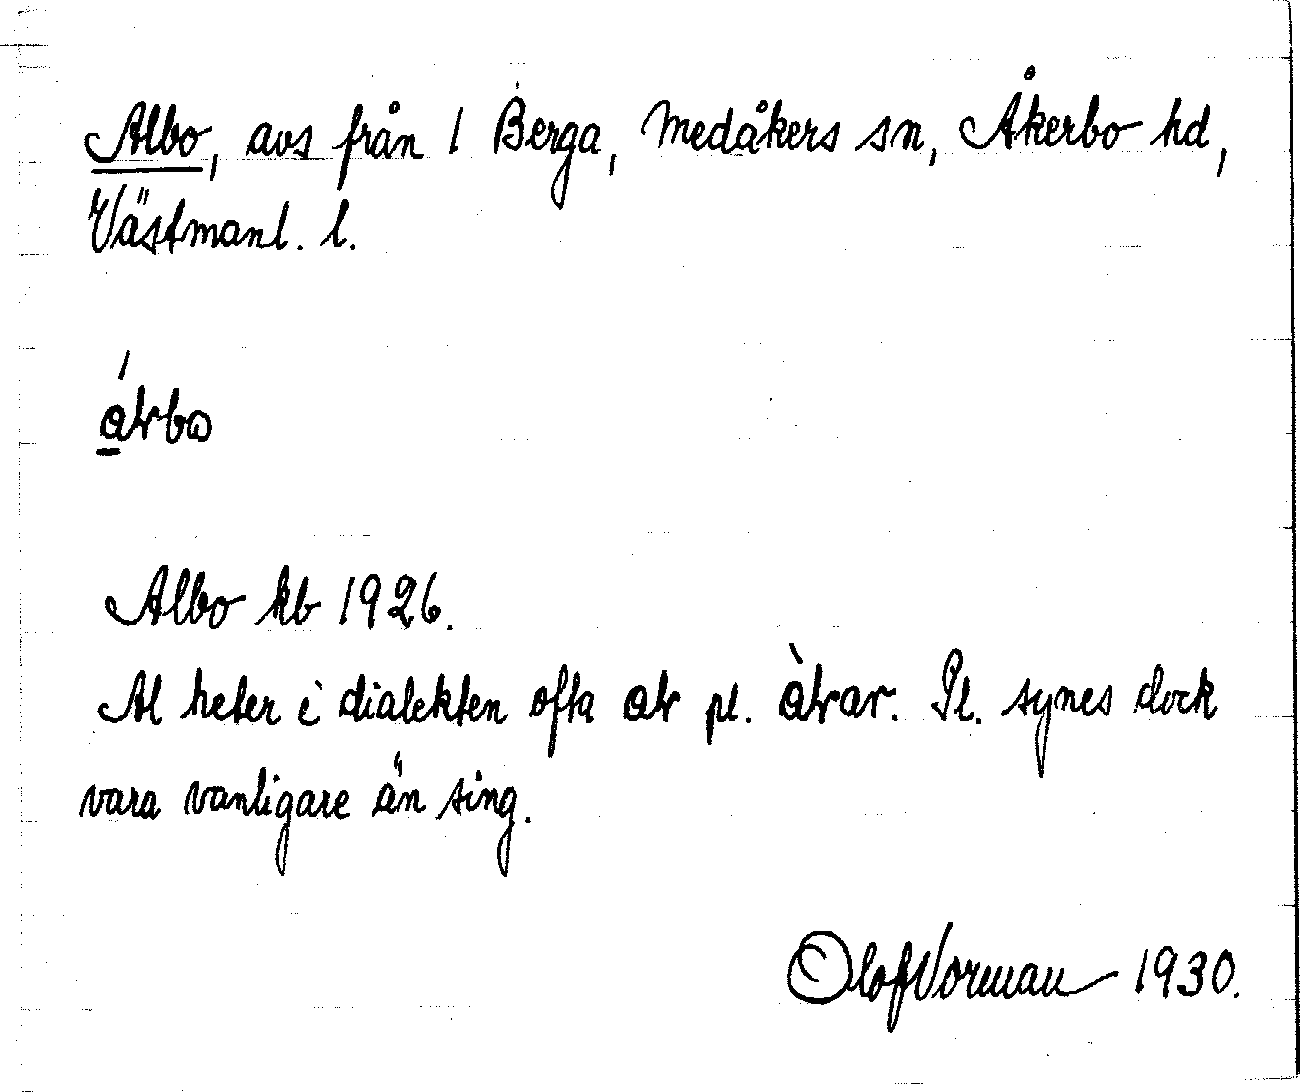 Albo, avs från 1 Berga, Medåkers sn, Åkerbo hd,
Västmanl. l.
Albo kb 1926.
Al heter i dialekten ofta pl. Pl. synes dock
vara vanligare än sing.
Olof Norman 1930.